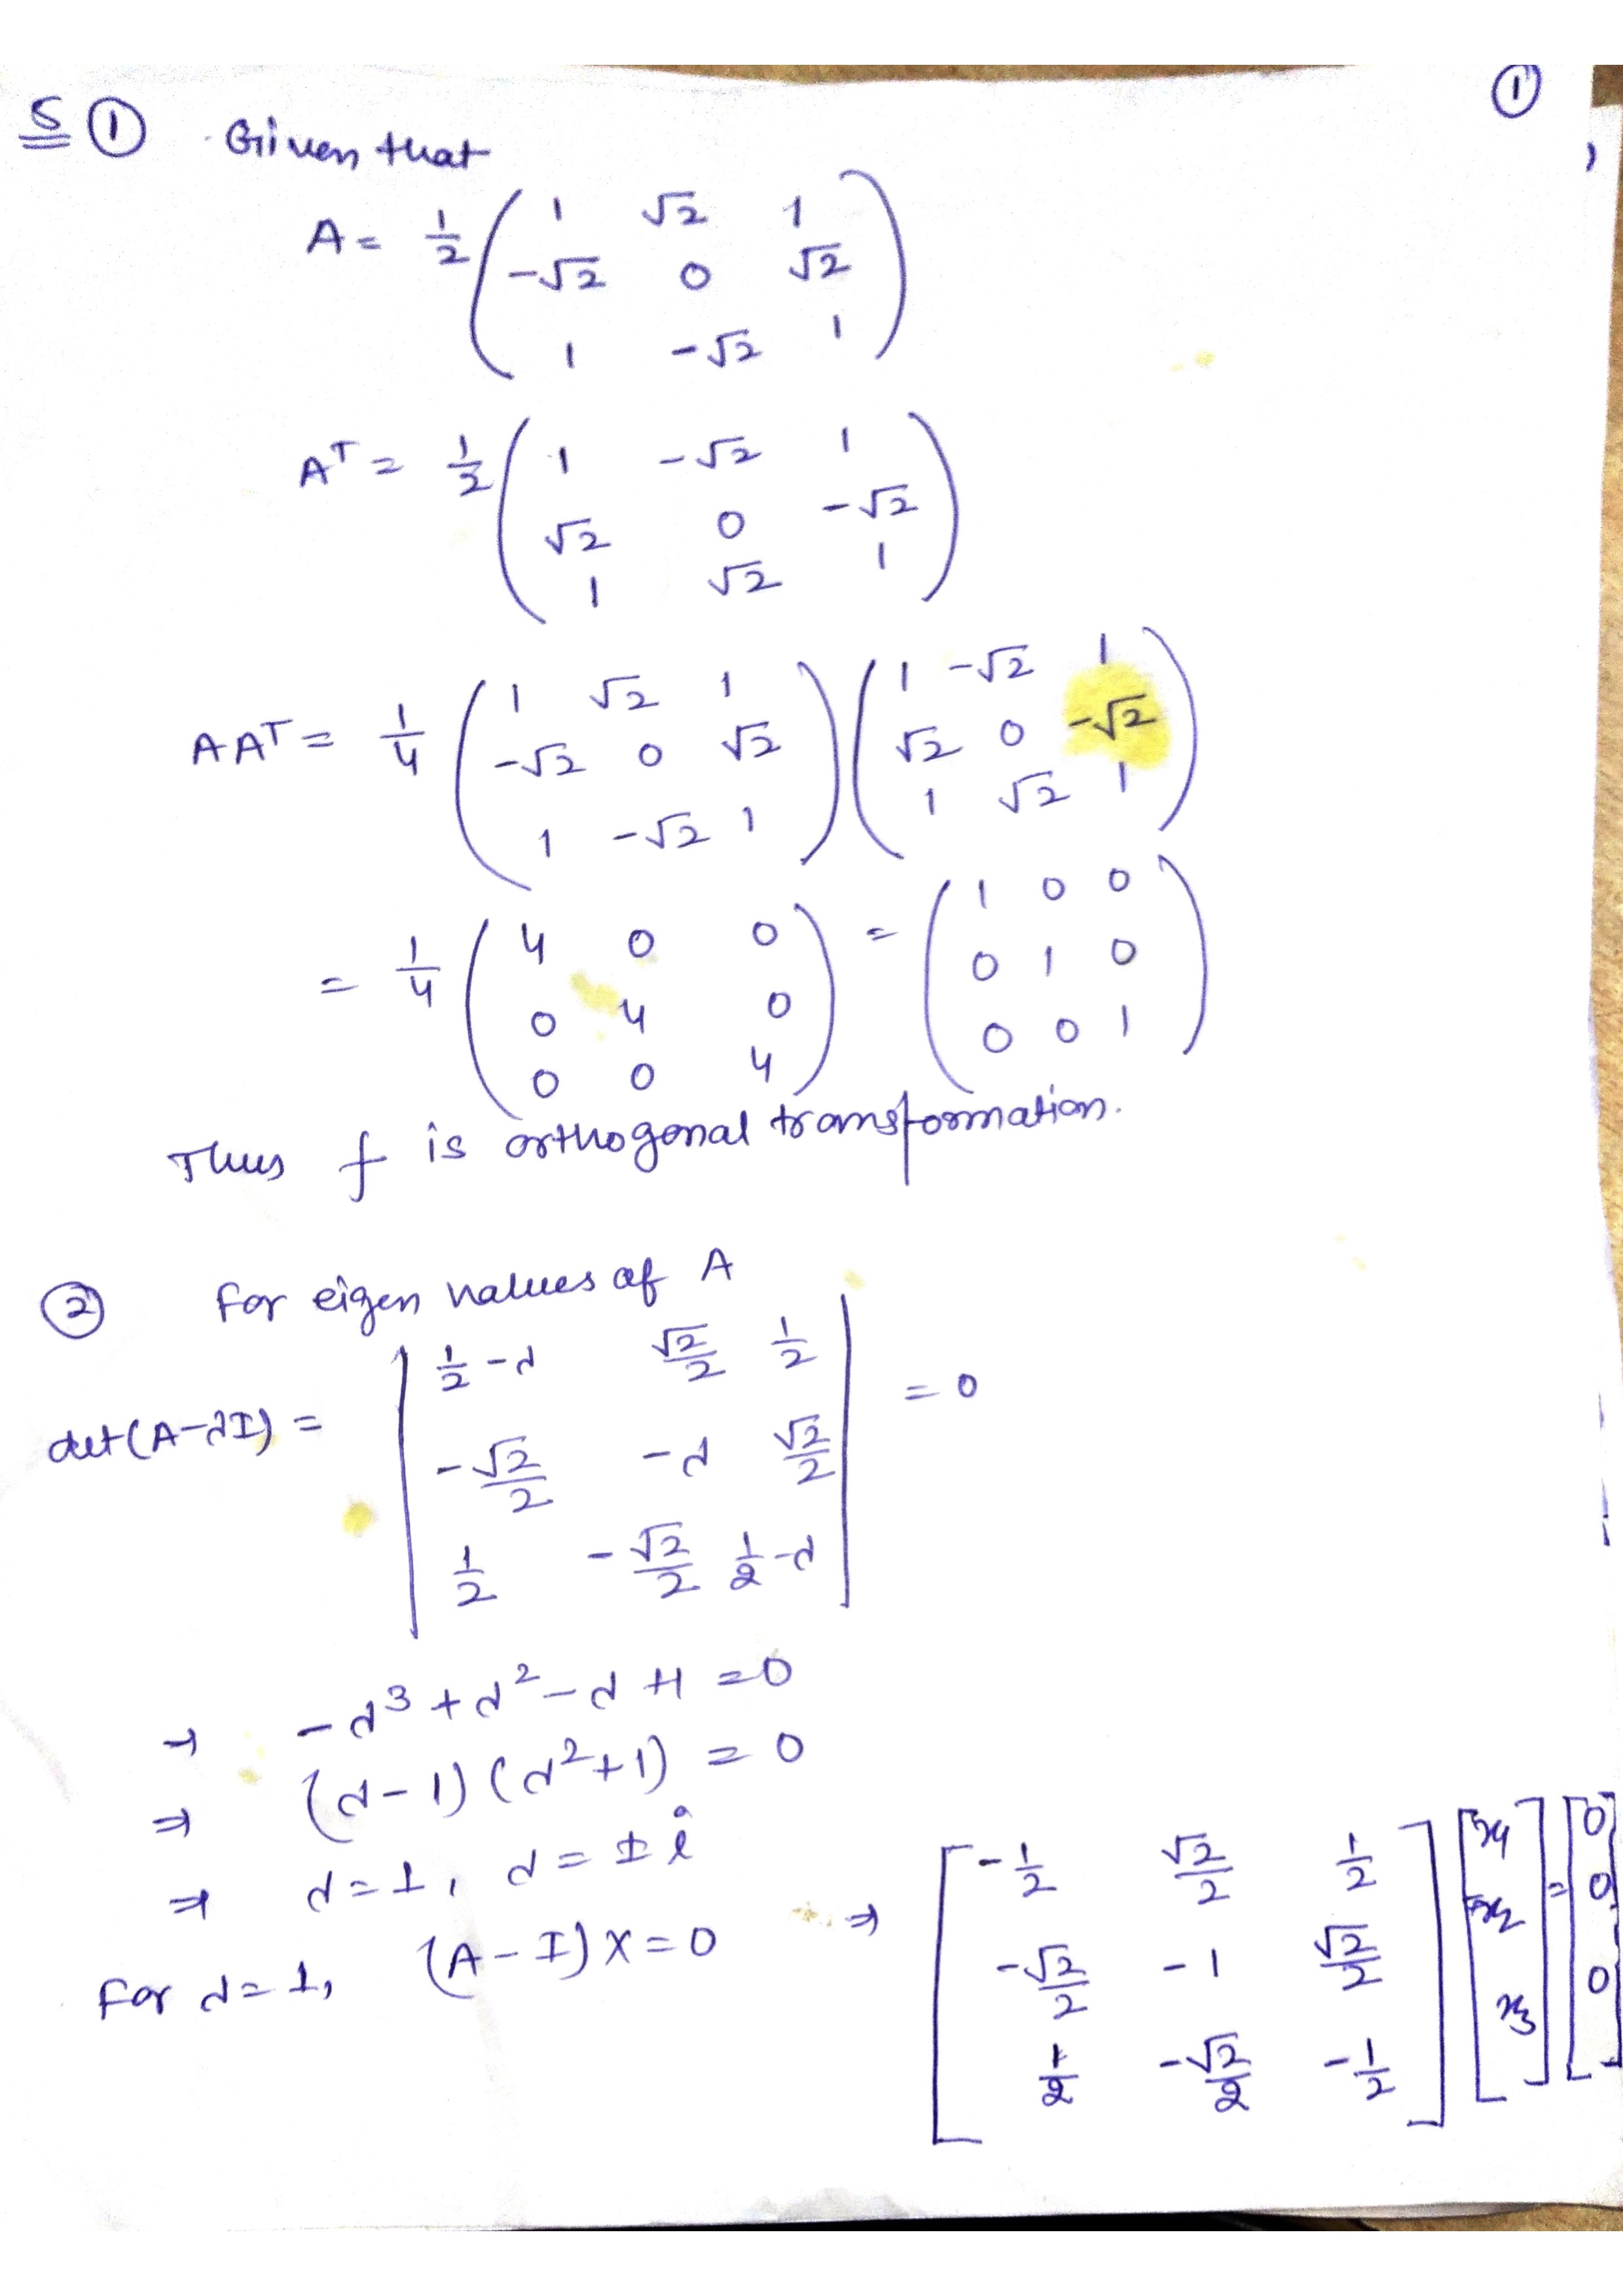 ①
S ① Given that
A = 1/2 ( 1 √2 1
-√2 0 √2
1 -√2 1 )
Aᵀ = 1/2 ( 1 -√2 1
√2 0 -√2
1 √2 1 )
AAᵀ = 1/4 ( 1 √2 1
-√2 0 √2
1 -√2 1 ) ( 1 -√2 1
√2 0 -√2
1 √2 1 )
= 1/4 ( 4 0 0
0 4 0
0 0 4 ) = ( 1 0 0
0 1 0
0 0 1 )
Thus f is orthogonal transformation.
② For eigen values of A
det(A-λI) = | 1/2-λ √2/2 1/2
-√2/2 -λ √2/2
1/2 -√2/2 1/2-λ | = 0
→ -λ³+λ²-λ+1 = 0
⇒ (λ-1)(λ²+1) = 0
⇒ λ=1, λ=±i
For λ=1, (A-I)X=0 ⇒ [ -1/2 √2/2 1/2
-√2/2 -1 √2/2
1/2 -√2/2 -1/2 ] [ x₁
x₂
x₃ ] = [ 0
0
0 ]